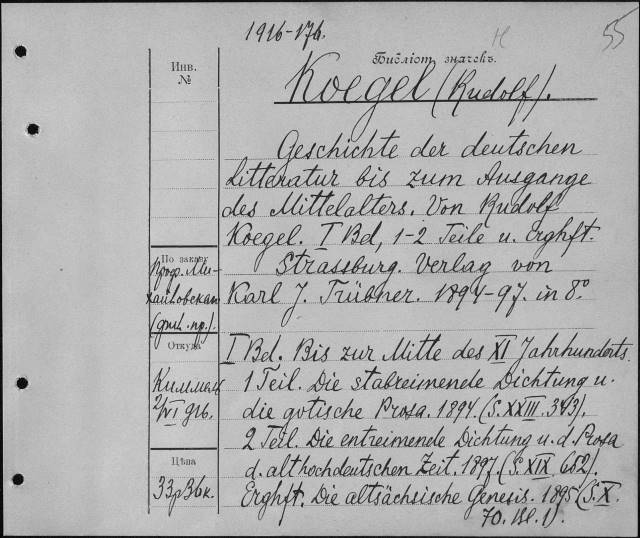 1916-176.
Н
55
Библіот. значекъ.
Koegel (Rudolf).
Инв.
№
Geschichte der deutschen
Litteratur bis zum Ausgange
des Mittelalters. Von Rudolf
Koegel. I Bd, 1-2 Teile u. Erghft.
Strassburg. Verlag von
Karl J. Trübner. 1894-97. in 8º
По заказу
Проф. Ми-
хайловскаго
Откуда
Киммель
2/VI
Цѣна
33р36к.
I Bd. Bis zur Mitte des XI Jahrhunderts.
1 Teil. Die stabreimende Dichtung u.
die gotische Prosa. 1894. (S. XXIII. 343).
2 Teil. Die entreimende Dichtung u. d. Prosa
d. althochdeutschen Zeit. 1897. (S. XIX. 652).
Erghft. Die altsächsische Genesis. 1895 (S. X.
70. Bl. 1).